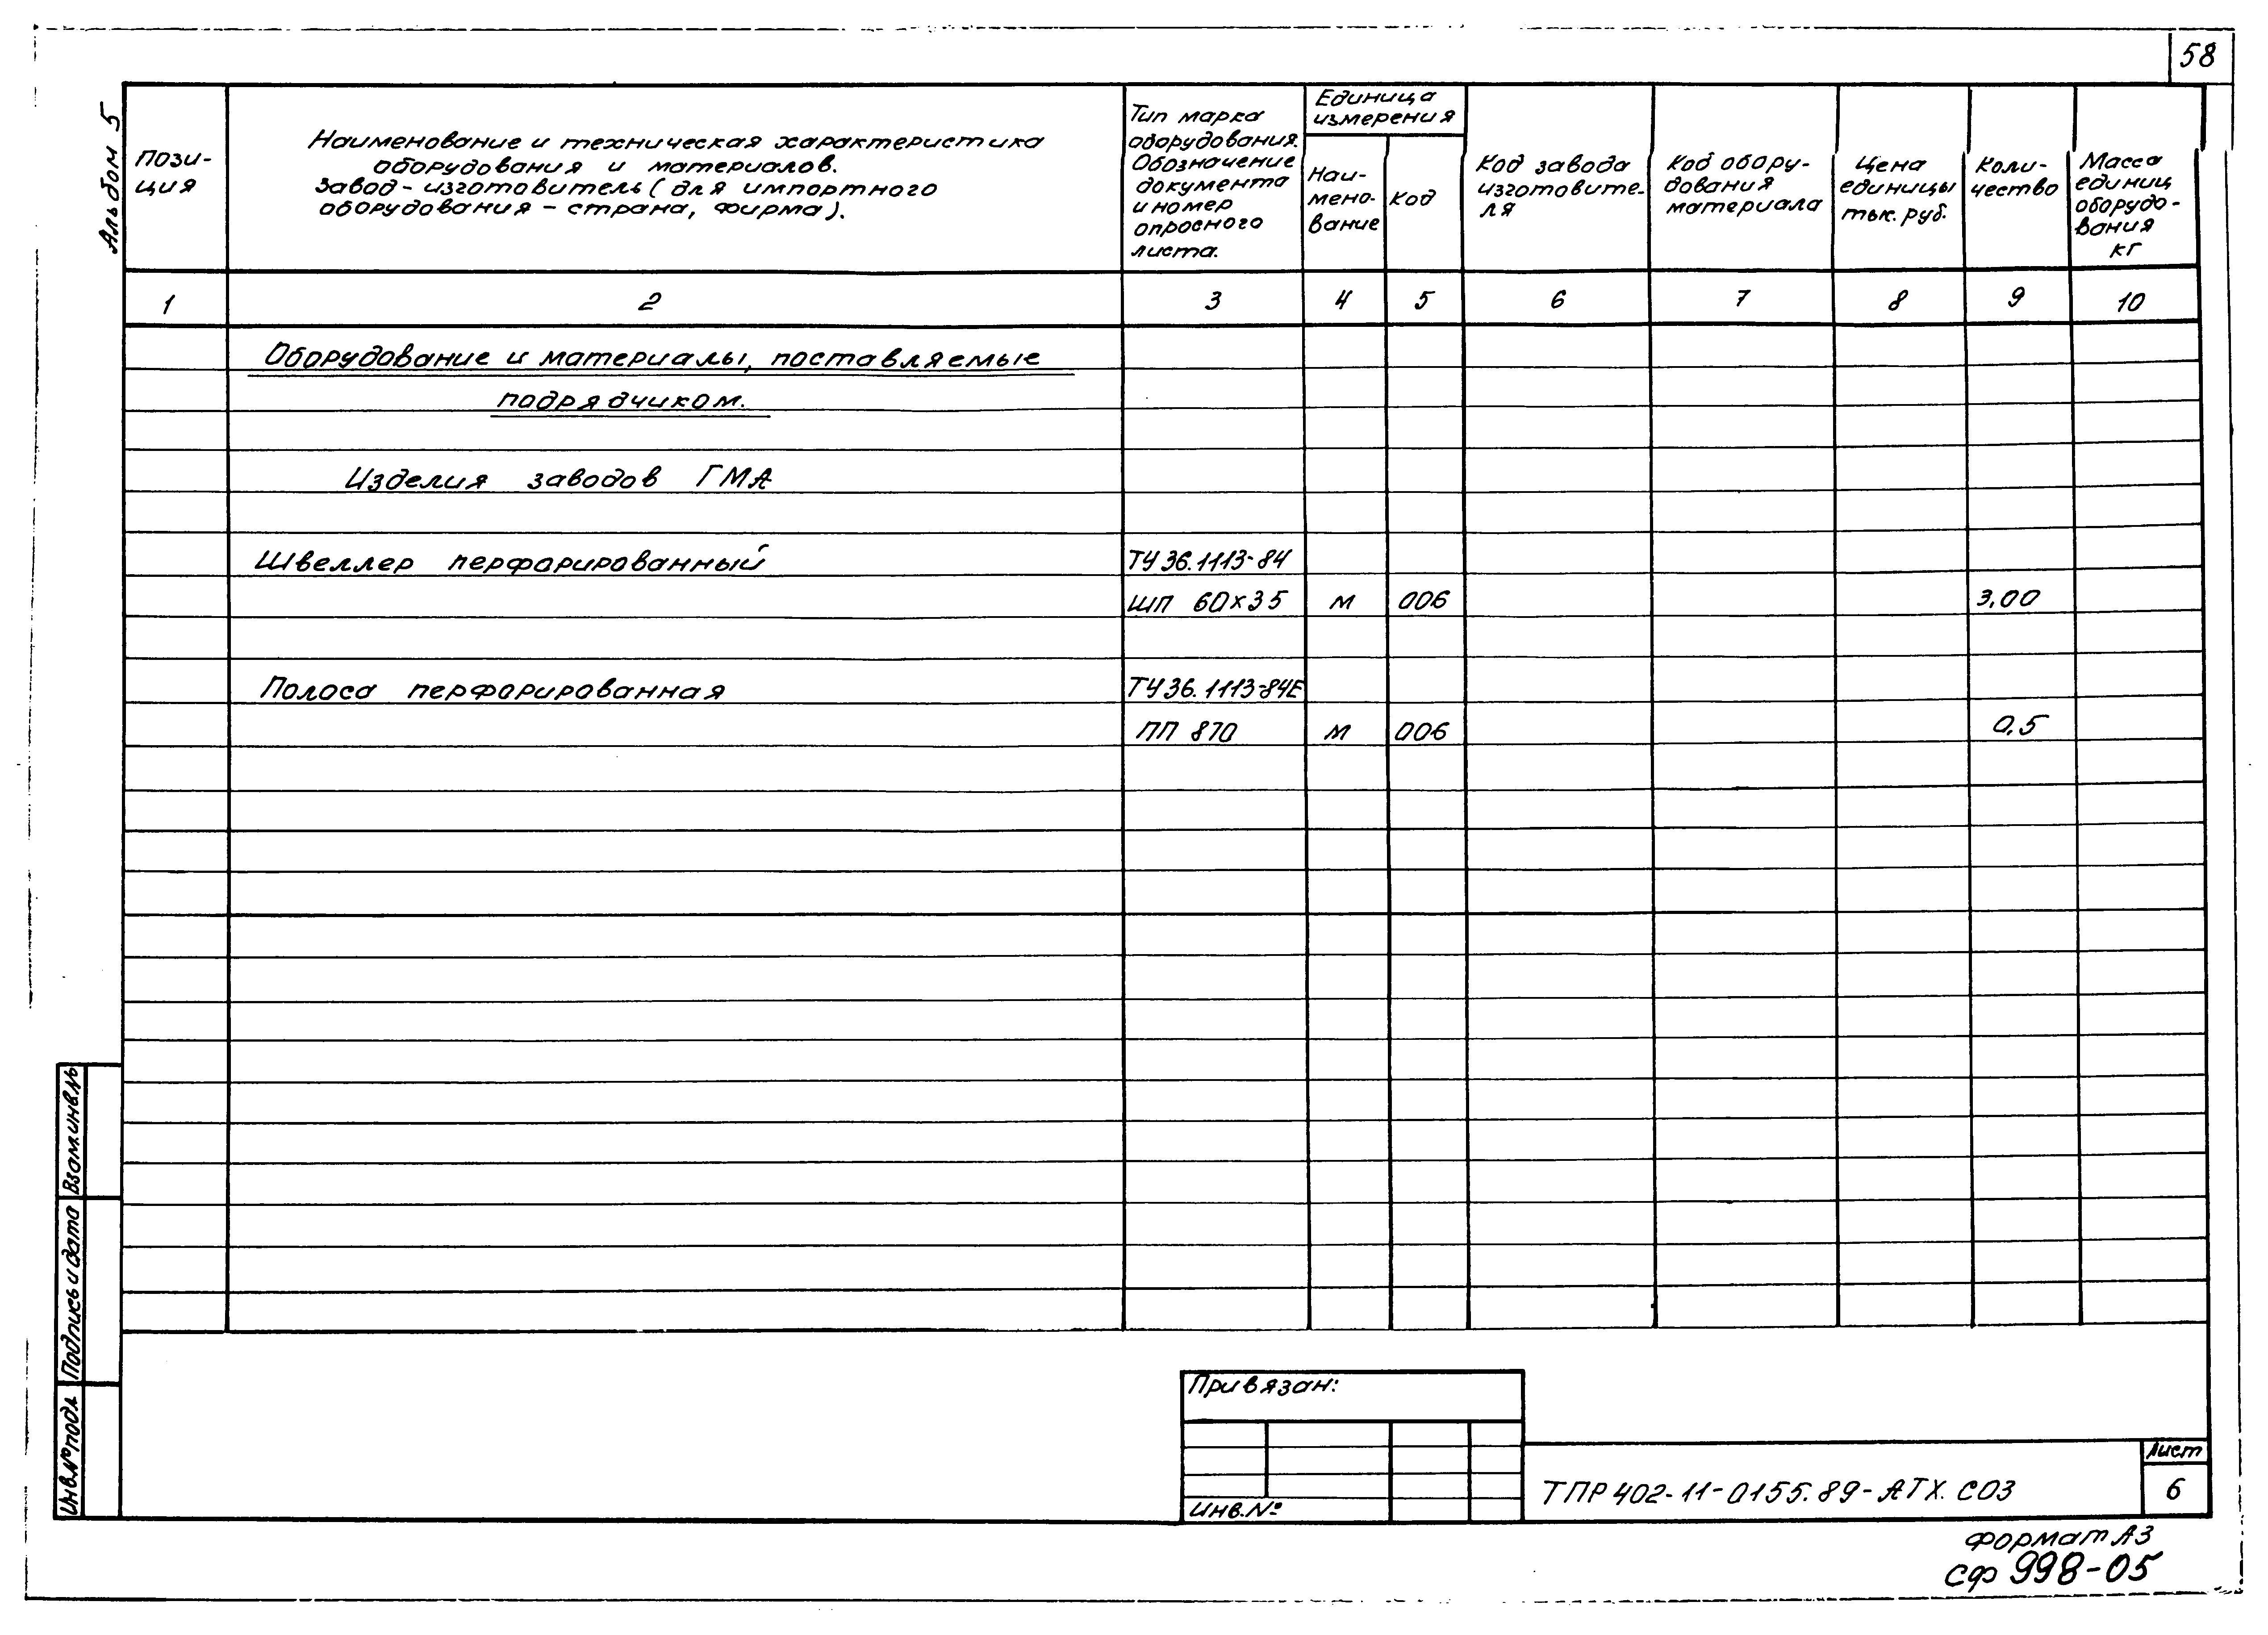 58
Альбом 5
Пози-
ция
Наименование и техническая характеристика
оборудования и материалов.
Завод-изготовитель (для импортного
оборудования - страна, фирма).
Тип марка
оборудования.
Обозначение
документа
и номер
опросного
листа.
Единица
измерения
Наи-
мено-
вание
Код
Код завода
изготовите-
ля
Код обору-
дования
материала
Цена
единицы
тыс. руб.
Коли-
чество
Масса
единиц
оборудо-
вания
кг
1 2 3 4 5 6 7 8 9 10
Оборудование и материалы, поставляемые
подрядчиком.
Изделия заводов ГМА
Швеллер перфорированный ТУ 36.1113-84
ШП 60х35 м 006 3,00
Полоса перфорированная ТУ 36.1113-84Е
ПП 870 м 006 0,5
Взам.инв.№
Подпись и дата
Инв.№ подл
Привязан:
Инв.№
ТПР 402-11-0155.89-АТХ.СО3
Лист
6
Формат А3
СФ 998-05